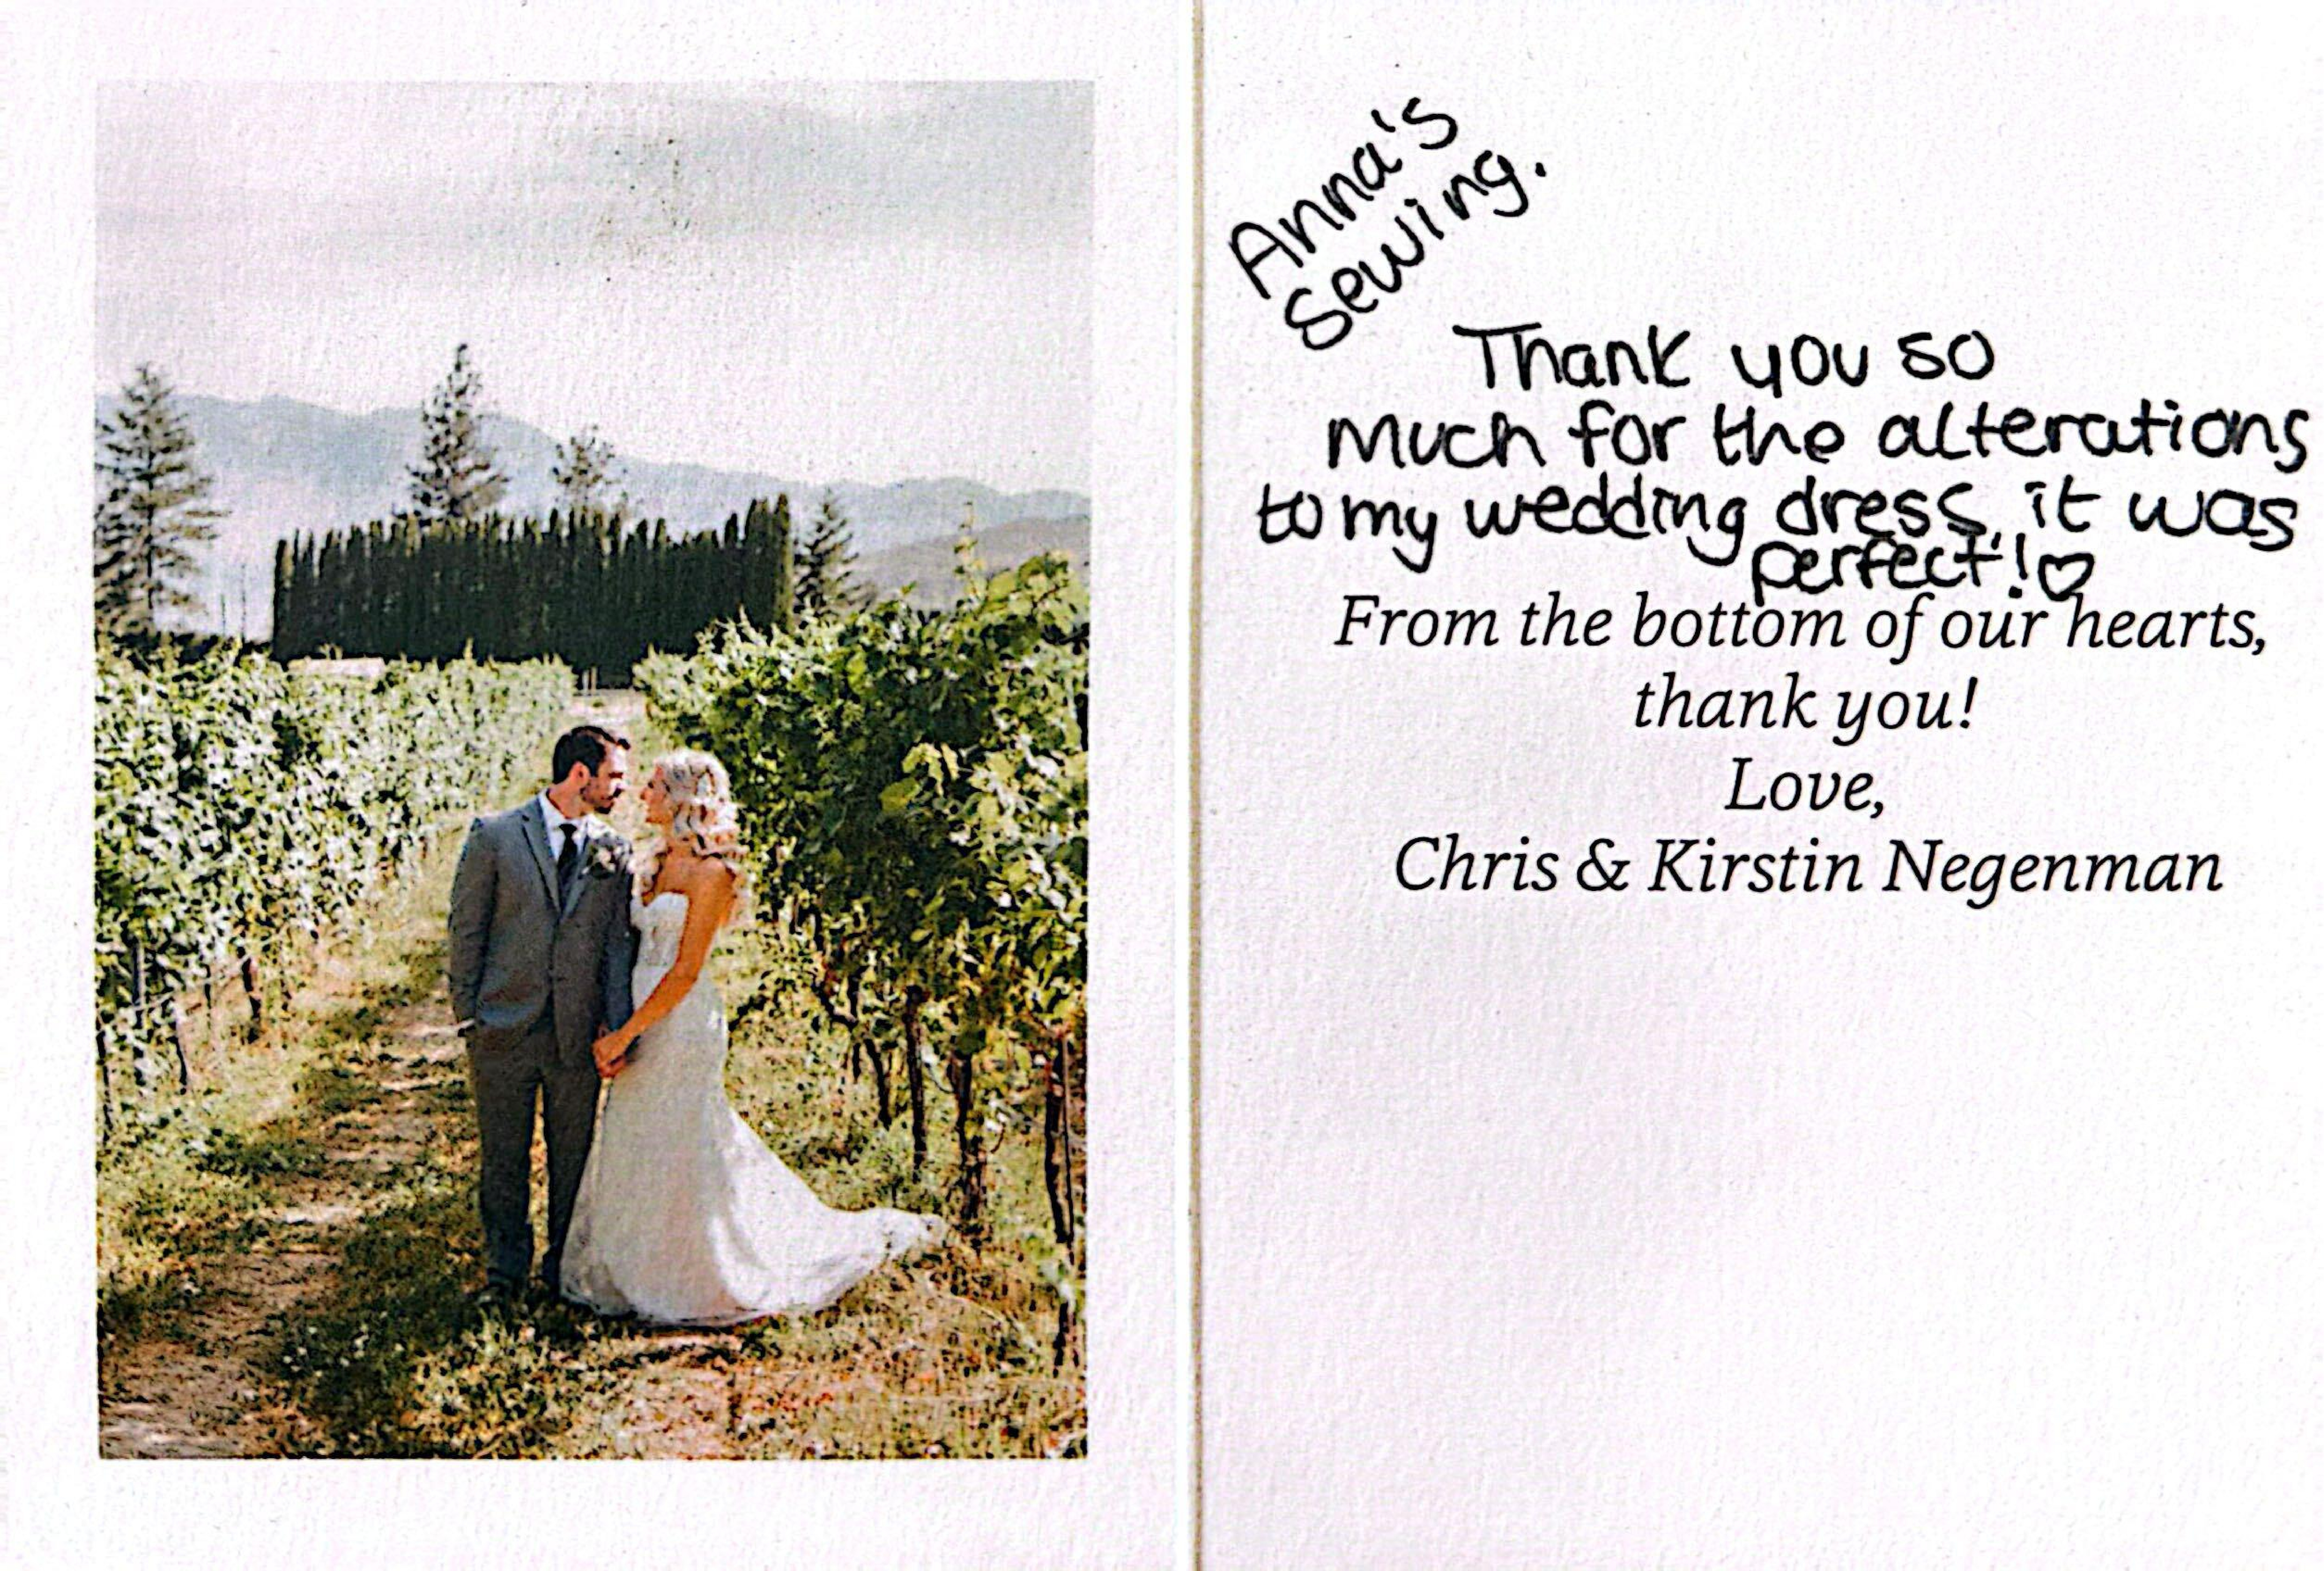 Anna's
Sewing.
Thank you so
much for the alterations
to my wedding dress, it was
perfect! ♡
From the bottom of our hearts,
thank you!
Love,
Chris & Kirstin Negenman